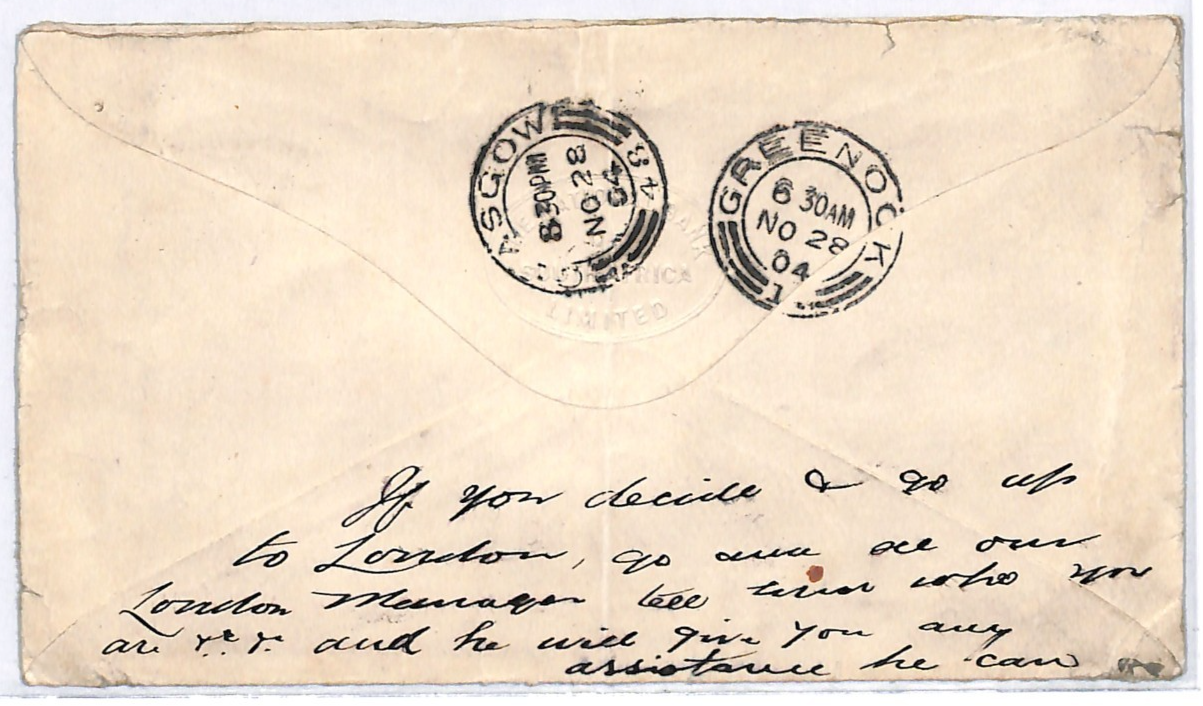 GLASGOW
8 30 PM
NO 28
04
84
GREENOCK
6 30 AM
NO 28
04
1
THE NATIONAL BANK
SOUTH AFRICA
LIMITED
If you decide to go up
to London, go and see our
London Manager tell him who you
are &c &c and he will give you any
assistance he can